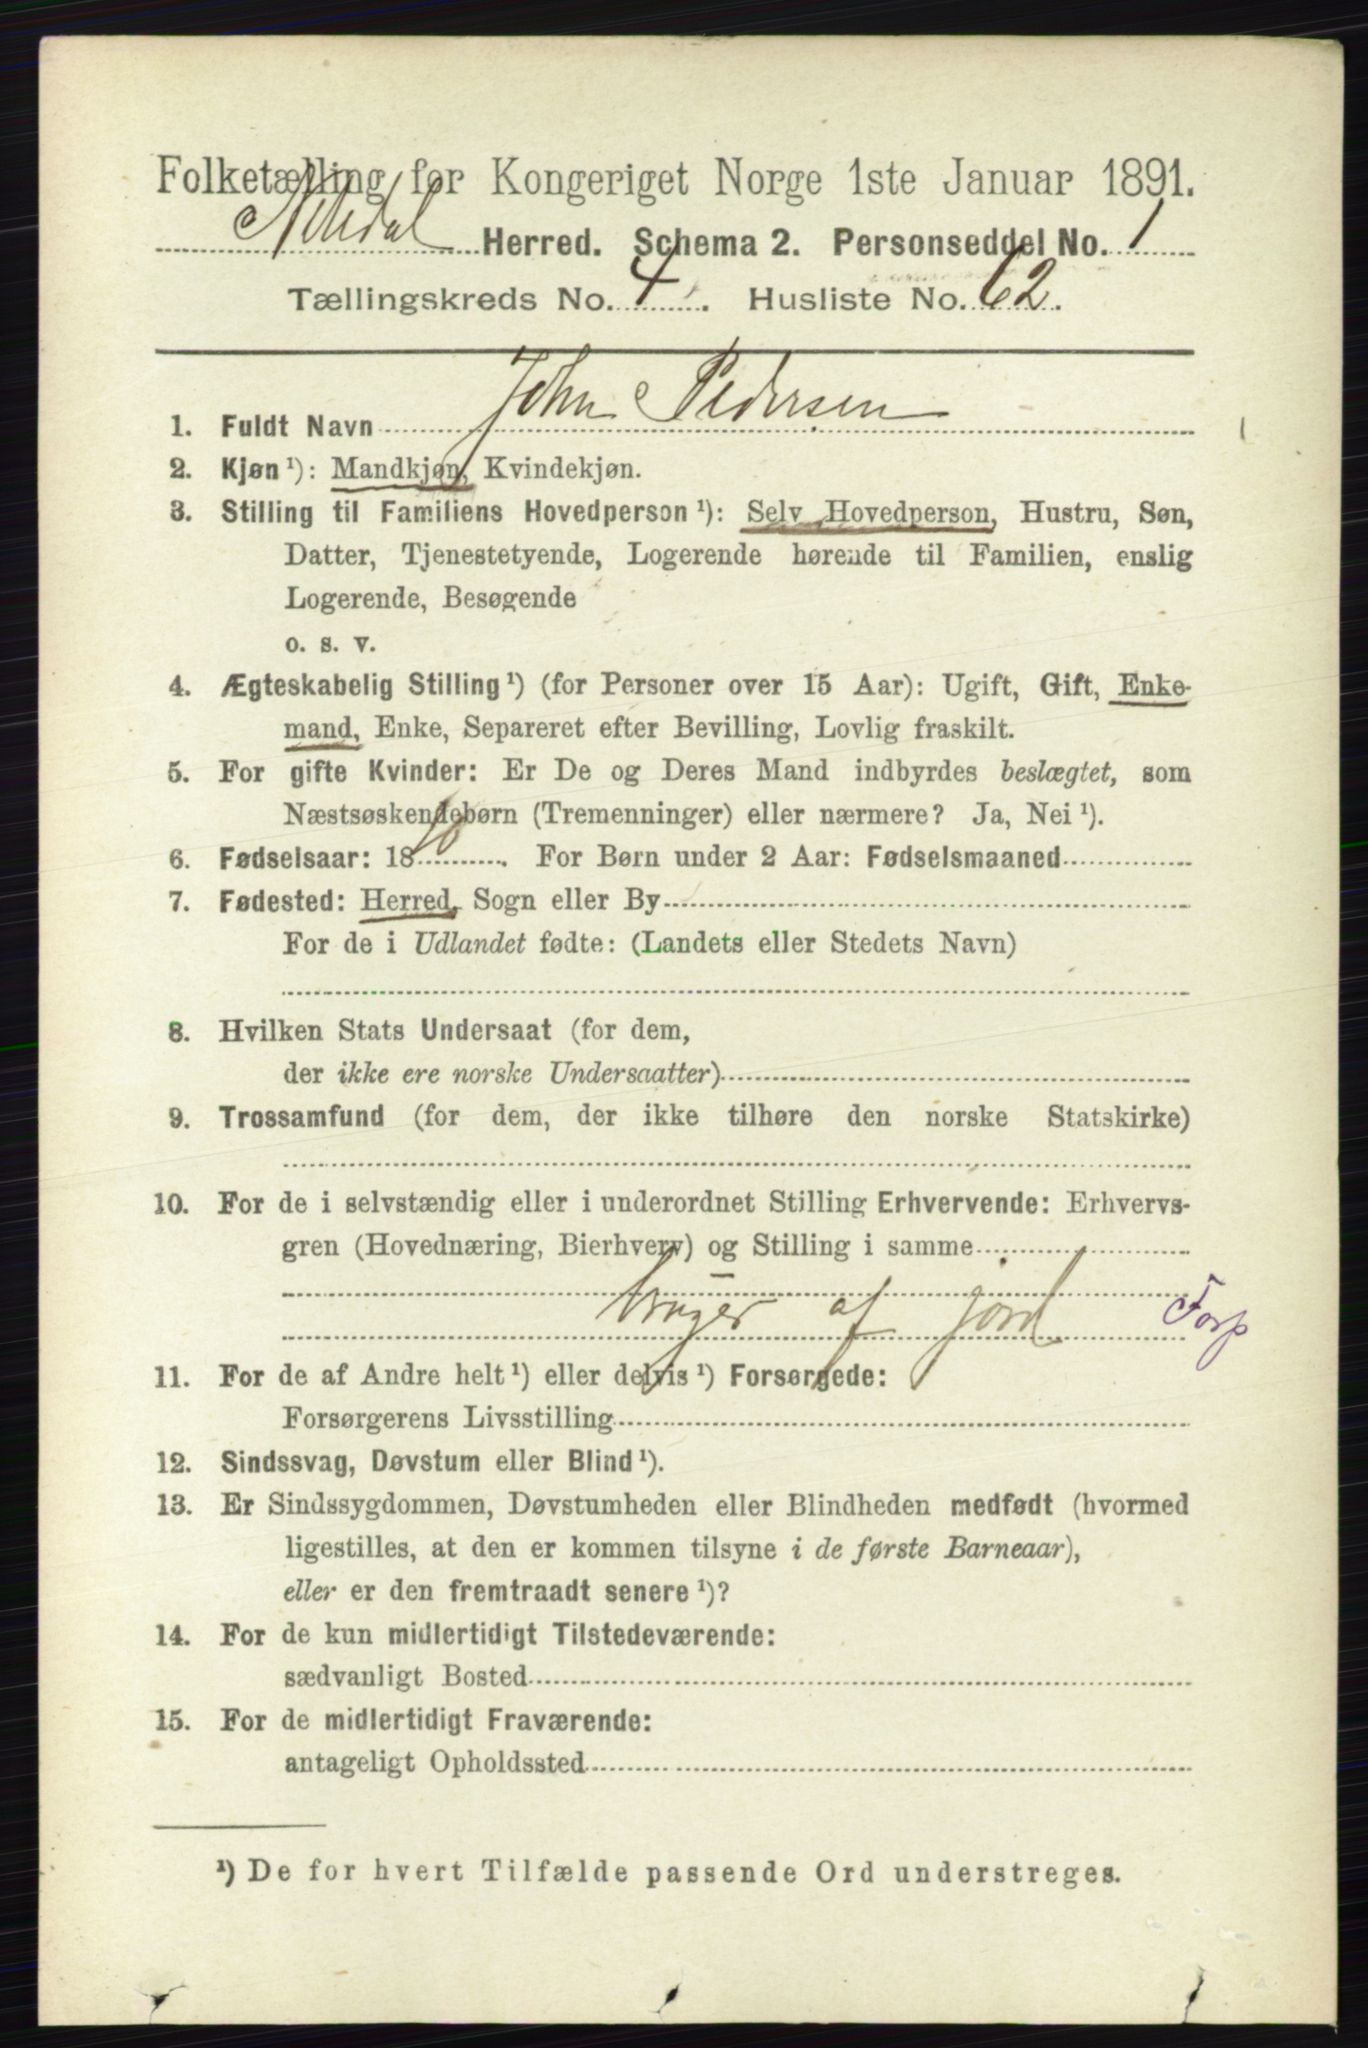 Folketælling for Kongeriget Norge 1ste Januar 1891.
Nittedal Herred. Schema 2. Personseddel No. 1
Tællingskreds No. 4. Husliste No. 62.
1. Fuldt Navn John Pedersen
2. Kjøn ¹): Mandkjøn, Kvindekjøn.
3. Stilling til Familiens Hovedperson ¹): Selv Hovedperson, Hustru, Søn,
Datter, Tjenestetyende, Logerende hørende til Familien, enslig
Logerende, Besøgende
o. s. v.
4. Ægteskabelig Stilling ¹) (for Personer over 15 Aar): Ugift, Gift, Enke-
mand, Enke, Separeret efter Bevilling, Lovlig fraskilt.
5. For gifte Kvinder: Er De og Deres Mand indbyrdes beslægtet, som
Næstsøskendebørn (Tremenninger) eller nærmere? Ja, Nei ¹).
6. Fødselsaar: 18 10. For Børn under 2 Aar: Fødselsmaaned
7. Fødested: Herred, Sogn eller By
For de i Udlandet fødte: (Landets eller Stedets Navn)
8. Hvilken Stats Undersaat (for dem,
der ikke ere norske Undersaatter)
9. Trossamfund (for dem, der ikke tilhøre den norske Statskirke)
10. For de i selvstændig eller i underordnet Stilling Erhvervende: Erhvervs-
gren (Hovednæring, Bierhverv) og Stilling i samme
bruger af jord Forp
11. For de af Andre helt ¹) eller delvis ¹) Forsørgede:
Forsørgerens Livsstilling
12. Sindssvag, Døvstum eller Blind ¹).
13. Er Sindssygdommen, Døvstumheden eller Blindheden medfødt (hvormed
ligestilles, at den er kommen tilsyne i de første Barneaar),
eller er den fremtraadt senere ¹)?
14. For de kun midlertidigt Tilstedeværende:
sædvanligt Bosted
15. For de midlertidigt Fraværende:
antageligt Opholdssted
¹) De for hvert Tilfælde passende Ord understreges.